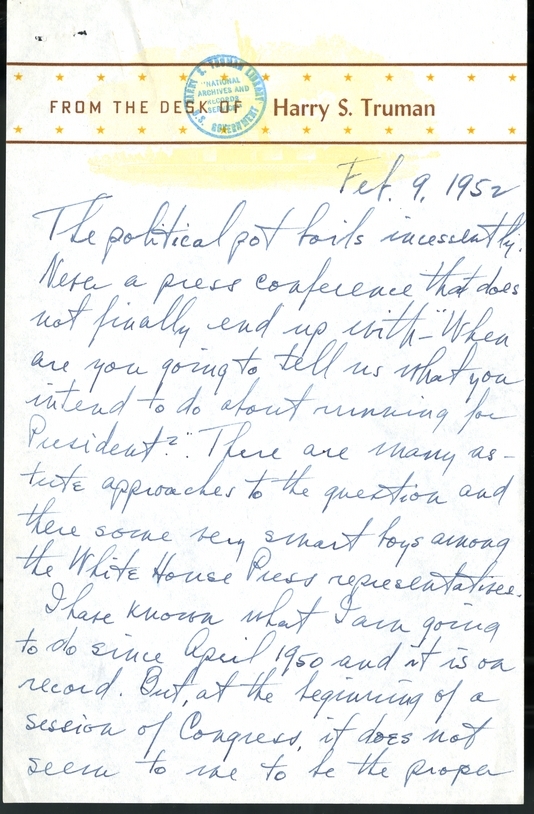 FROM THE DESK OF Harry S. Truman
HARRY S. TRUMAN LIBRARY
"NATIONAL
ARCHIVES AND
RECORDS
SERVICE"
U.S. GOVERNMENT
Feb. 9, 1952
The political pot boils incessently.
Never a press conference that does
not finally end up with—"When
are you going to tell us what you
intend to do about running for
President?". There are many as-
tute approaches to the question and
there some very smart boys among
the White House Press representatives.
I have known what I am going
to do since April 1950 and it is on
record. But, at the beginning of a
session of Congress, it does not
seem to me to be the proper